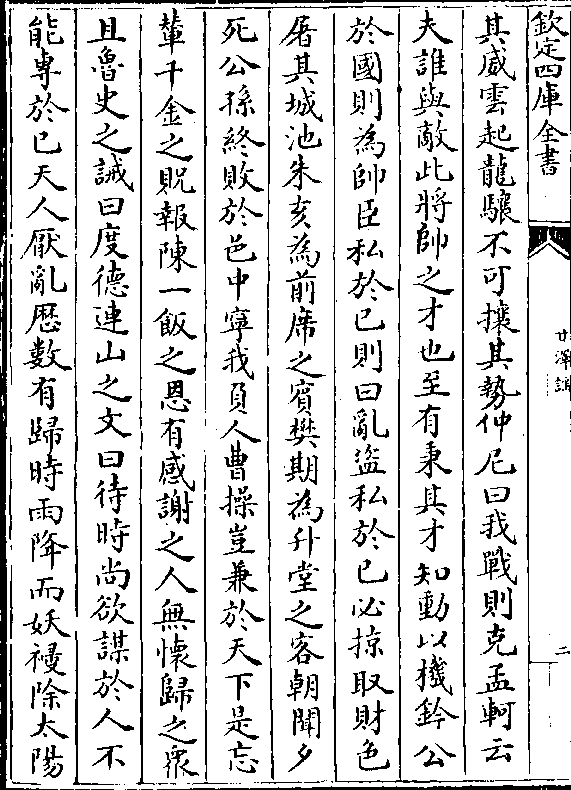 欽定四庫全書
甘澤謠
二
其威雲起龍驤不可攘其勢仲尼曰我戰則克孟軻云
夫誰與敵此將帥之才也至有秉其才知動以機鈐公
於國則為帥臣私於己則曰亂盜私於已必掠取財色
屠其城池朱亥為前席之賓樊期為升堂之客朝聞夕
死公孫終敗於邑中寧我負人曹操豈兼於天下是忘
輦千金之貺報陳一飯之恩有感謝之人無懷歸之衆
且魯史之誡曰度德連山之文曰待時尚欲謀於人不
能専於已天人厭亂厯數有歸時雨降而妖祲除太陽